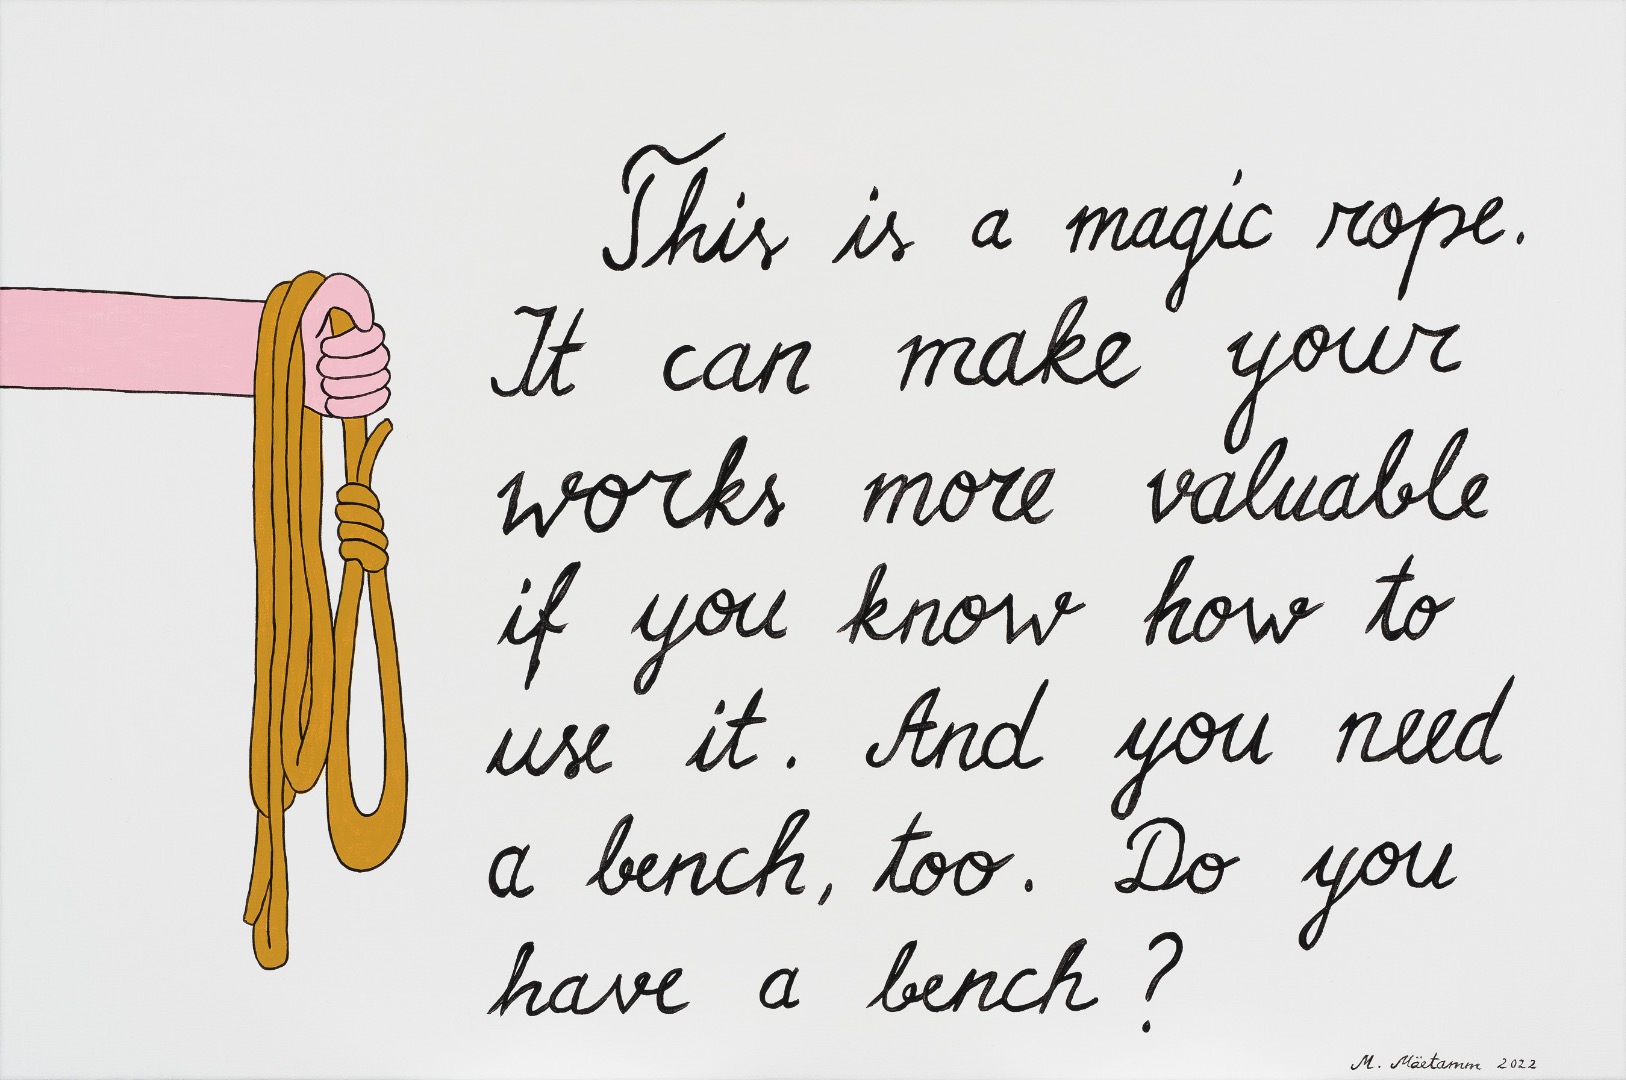 This is a magic rope.
It can make your
works more valuable
if you know how to
use it. And you need
a bench, too. Do you
have a bench?
M. Mäetamm 2022